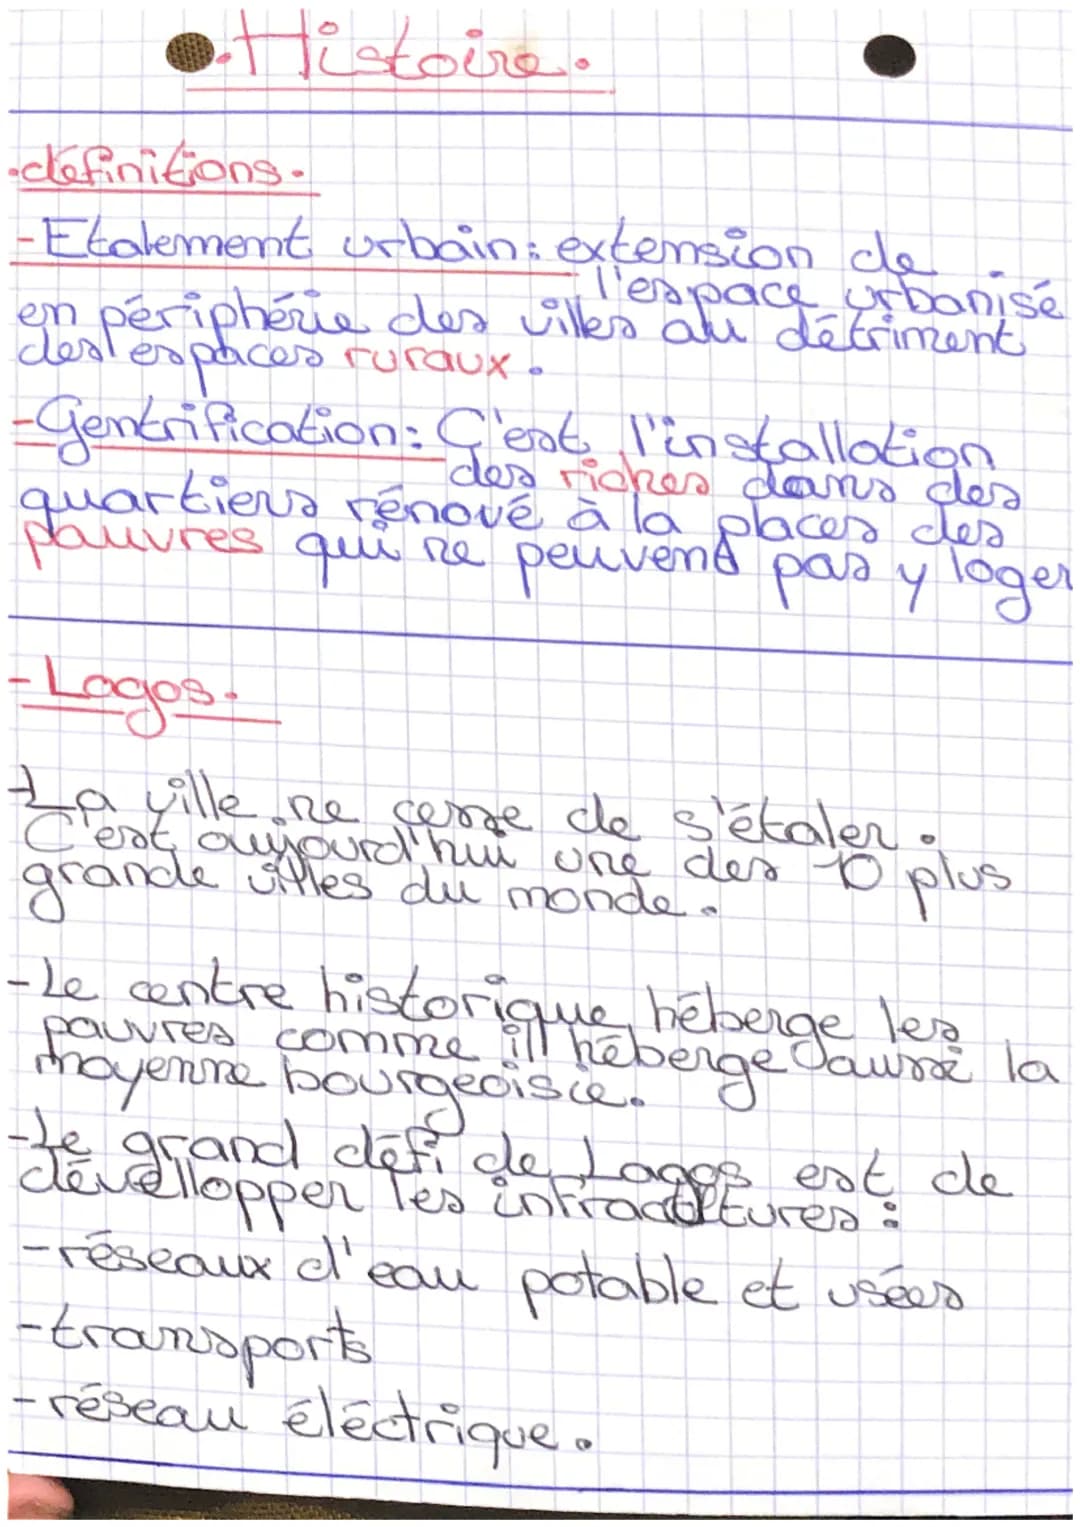 .Histoire.
.définitions.
-Etalement urbain: extension de
l'espace urbanisé
en périphérie des villes au détriment
des espaces ruraux.
-Gentrification: C'est l'installation
des riches dans des
quartiers rénové à la places des
pauvres qui ne peuvent pas y loger
-Lagos.
-La ville ne cesse de s'étaler.
C'est aujourd'hui une des 10 plus
grande villes du monde.
-Le centre historique héberge les
pauvres comme il héberge aussi la
moyenne bourgeoisie.
-Le grand défi de Lagos est de
dévellopper les
-réseaux d'eau potable et usées
-transports
-réseau éléctrique.